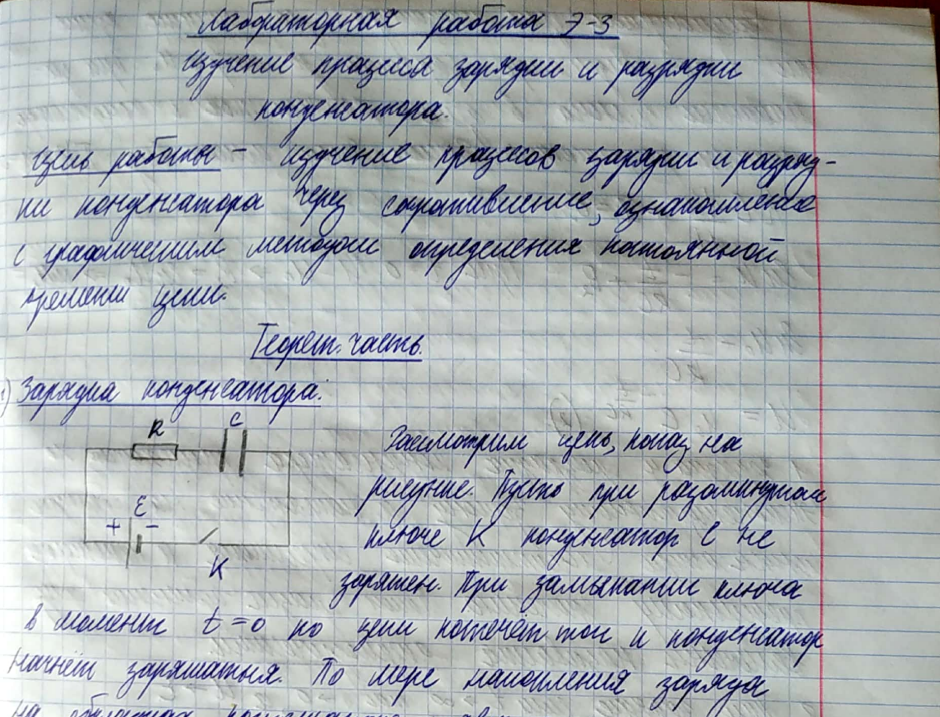 Лабораторная работа Э-3
Изучение процесса зарядки и разрядки
конденсатора.
Цель работы - изучение процессов зарядки и разряд-
ки конденсатора через сопротивление, ознакомление
с графическим методом определения постоянной
времени цепи.
Теорет. часть.
1) Зарядка конденсатора:
R C
Ɛ
+ -
K
Рассмотрим цепь, показ. на
рисунке. Пусть при разомкнутом
ключе К конденсатор С не
заряжен. При замыкании ключа
в момент t=0 по цепи потечёт ток и конденсатор
начнёт заряжаться. По мере накопления заряда
на обкладках